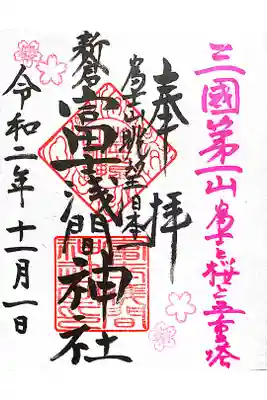 三國第一山 富士と桜と五重塔
奉拝
富士山眺望日本一
新倉富士浅間神社
令和二年十一月一日